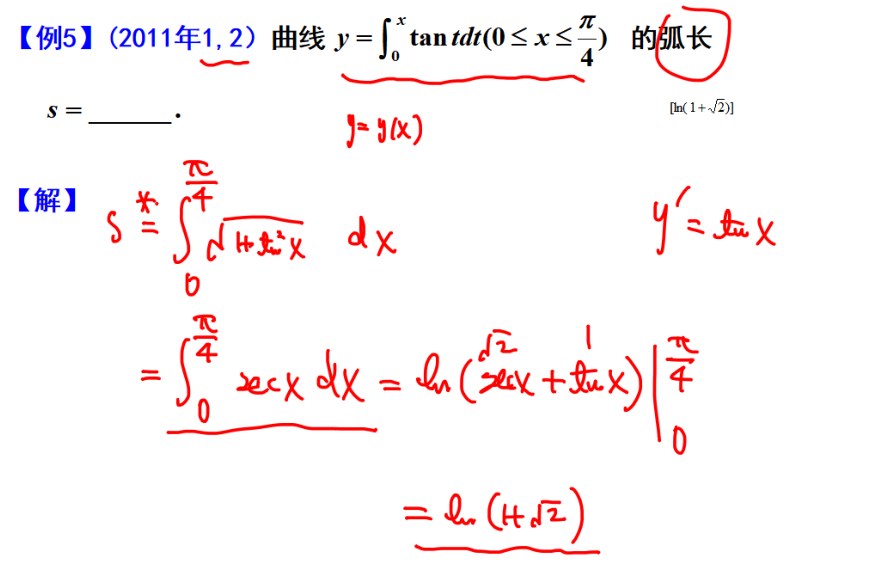 【例5】(2011年1,2) 曲线 y = ∫₀ˣ tan tdt(0 ≤ x ≤ π/4) 的弧长
s = ______.
[ln(1+√2)]
y = y(x)
【解】
s *= ∫₀^(π/4) √(1+tan²x) dx
y′ = tan x
= ∫₀^(π/4) sec x dx = ln(sec x + tan x) |₀^(π/4)
√2 1
= ln(1+√2)